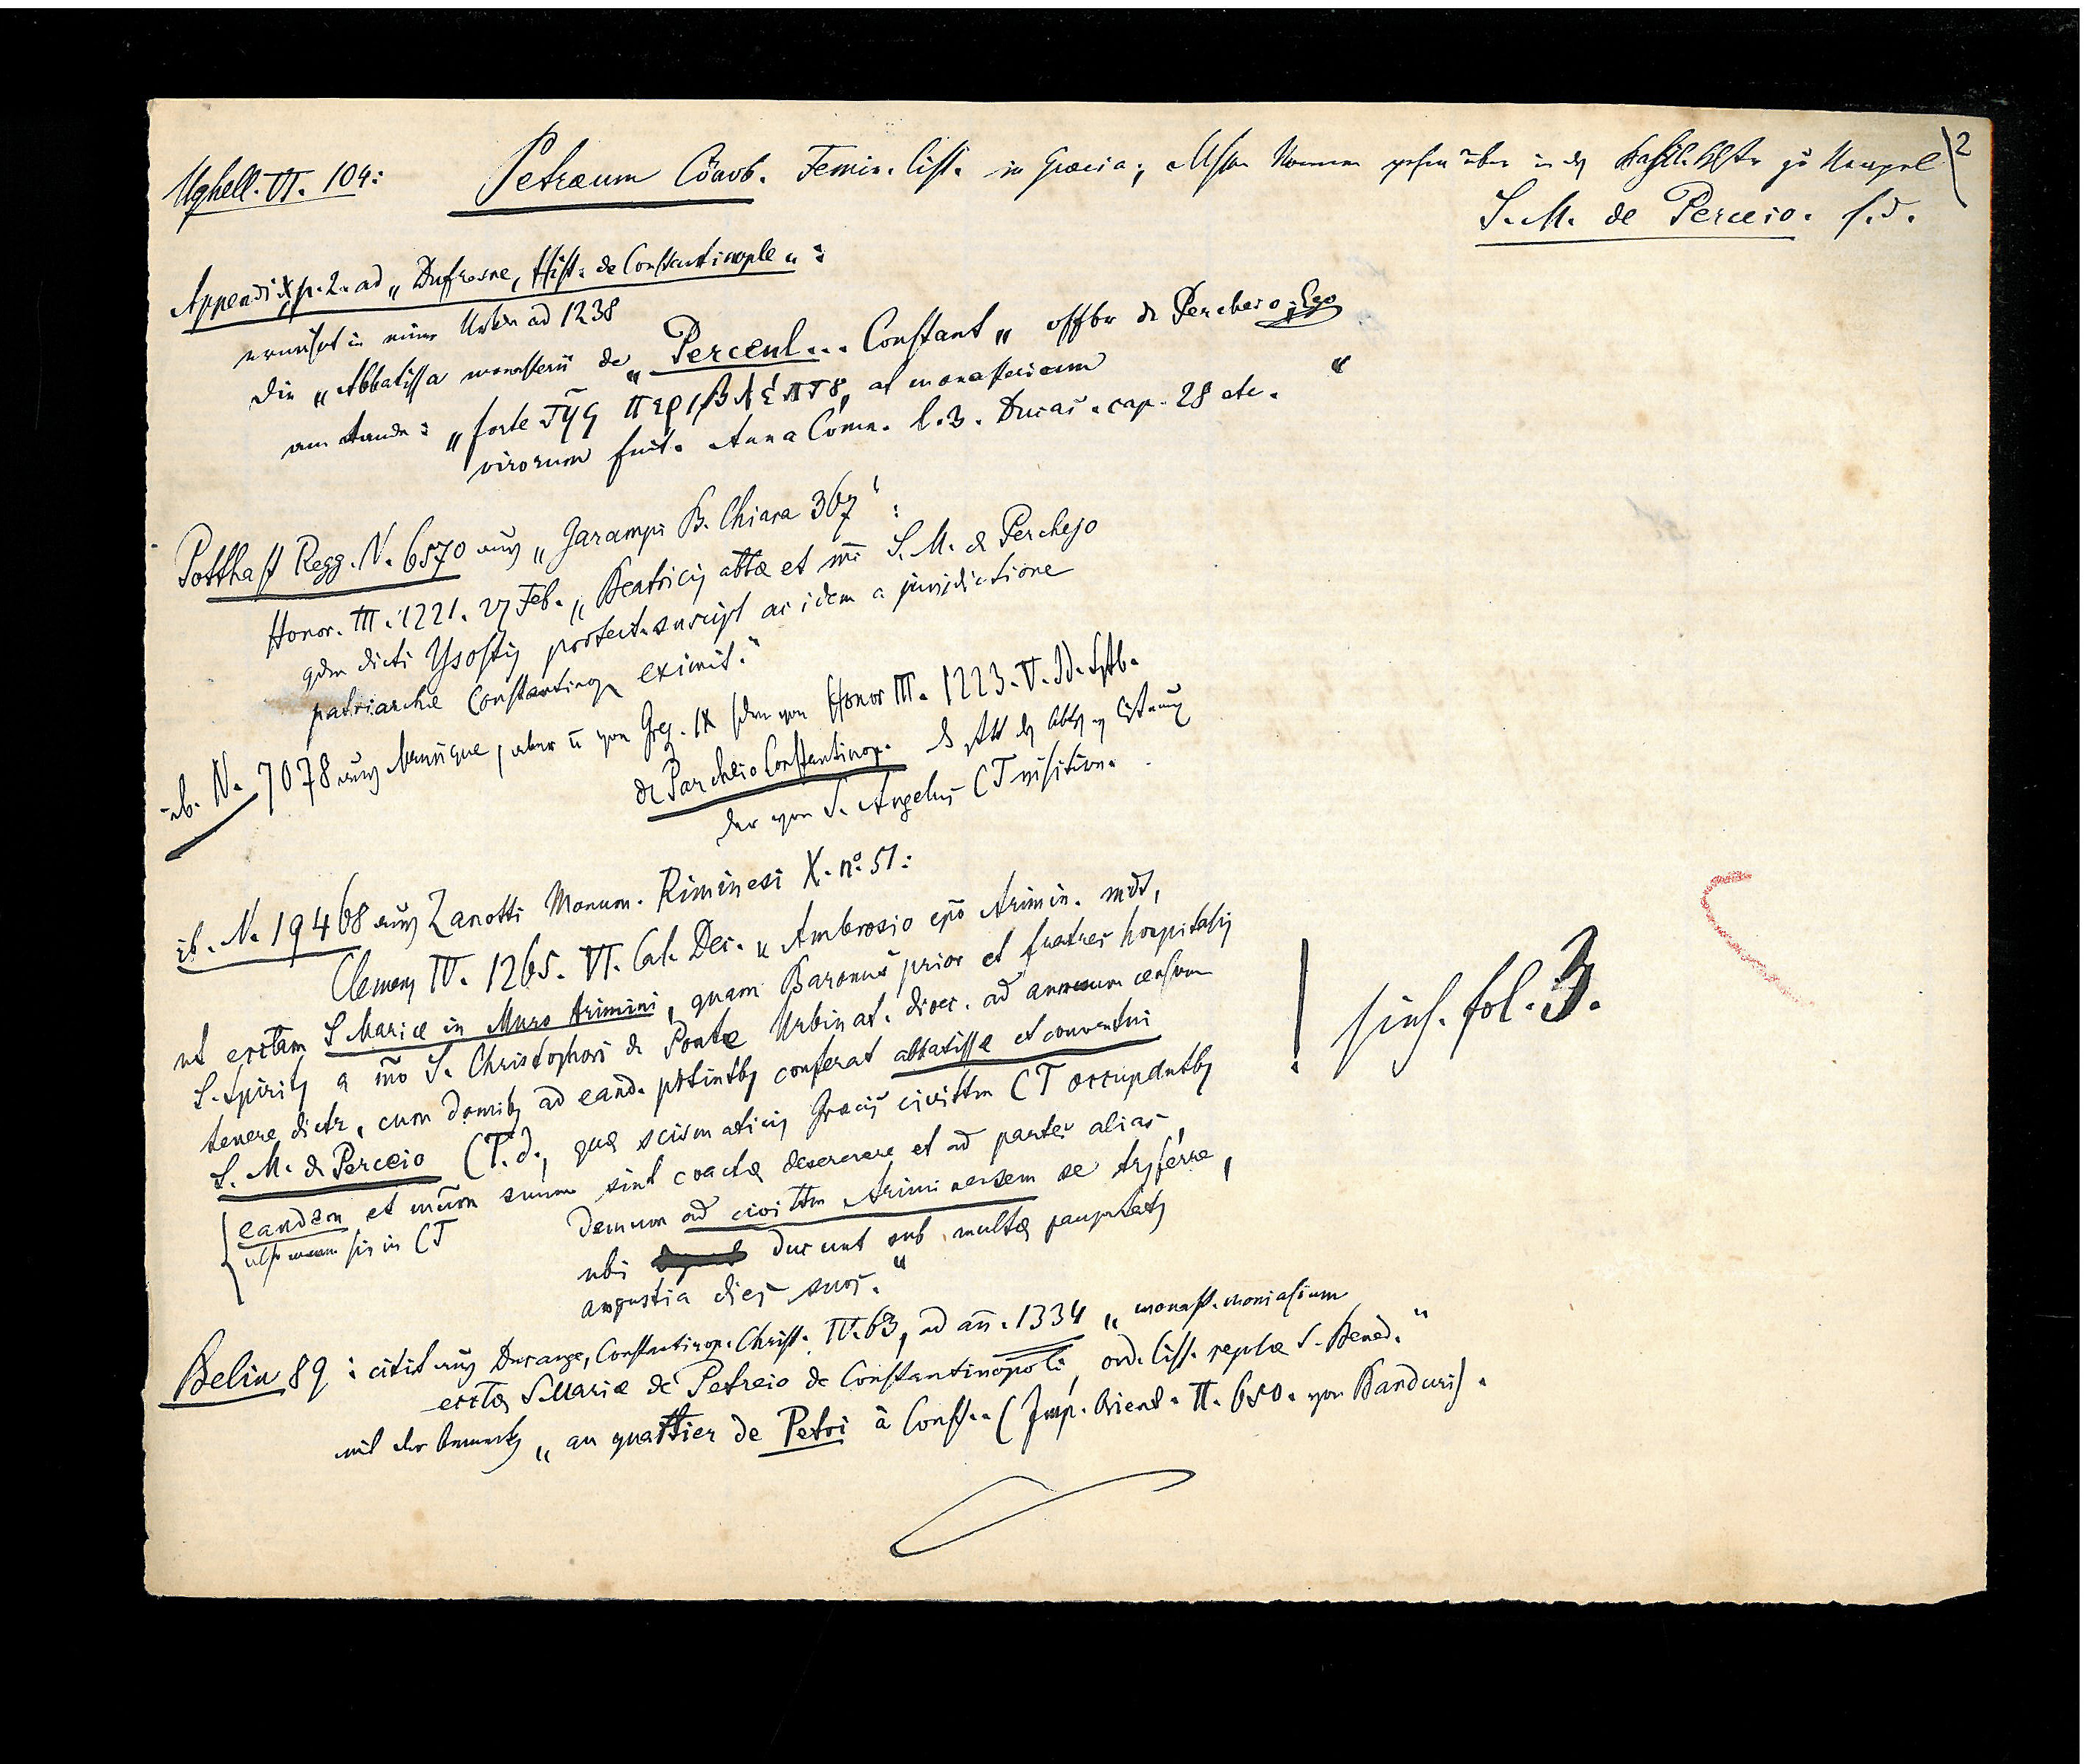 2
Ughell. VI. 104: Petraeum Cönob. Femin. Cist. in Graecia, dessen Nonnen gehen über in das zu Neapel
S. M. de Perceio. s. d.
Appendix p. 2. ad „Dufresne, Hist. de Constantinople":
erwähnt in einer Urkde ad 1238
die „Abbatissa monasterii de „Percenl... Constant" offbr de Percheio; Ego
am Rande: „forte τῆς περιβλέπτȣ, at monasterium
virorum fuit. Anna Comn. l. 3. Ducas. cap. 28 etc. "
Potthast Regg. N. 6570 aus „Garampi B. Chiara 367":
Honor. III. 1221. 27 Feb. „Beatricis abbae et mri S. M. de Perchejo
qdm dicti Ysostis protect. suscipt ac idem a jurisdictione
patriarchae Constantinop eximit."
ib. N. 7078 aus Manrique, aber u von Greg. IX von Honor III. 1223. V. Id. Sptb.
de Parcheio Constantinop.
der von S. Angelus CT
ib. N. 19468 aus Zanotti Monum. Riminesi X. no. 51:
Clemens IV. 1265. VI. Cal. Dec. „Ambrosio epo Arimin. mdt,
ut ecctam S Mariae in Muro Arimini, quam Baronus prior et fratres hospitalis
S. Spiritus a mro S. Christophori de Ponte Urbinat. dioec. ad annuum censum
tenere dictr, cum domibs ad eand. ptintbs conferat abbatissae et conventui
S. M. de Perceio CT. d., quae scismaticis Graecis civittm CT occupantbs
eandem et mrm suum sint coactae deserere et ad partes alias,
in CT demum ad civittm Ariminensem se trsferre,
ubi ducunt sub multa paupertatis
angustia dies suos."
! sieh. fol. 3.
Belin 89: citirt aus Ducange, Constantinop. Christ. IV. 63, ad añ. 1334 „monast. monialium
ecctae S Mariae de Petreio de Constantinopoli, ord. Cist. regulae S. Bened."
mit der Bemerkg „au quartier de Petri à Const.. (Imp. Orient. II. 650. von Banduri).